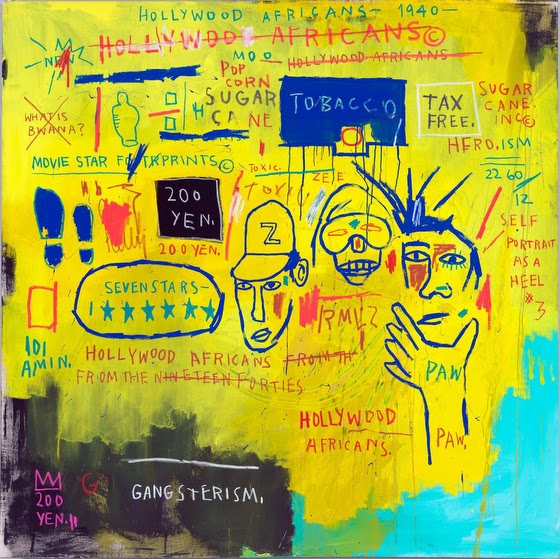 HOLLYWOOD AFRICANS - 1940 -
HOLLYWOOD AFRICANS©
HOLLYWOOD AFRICANS
POP
CORN
SUGAR
CANE
TOBACCO
TAX
FREE.
SUGAR
CANE
INC©
HERO.ISM
WHAT IS
BWANA?
MOVIE STAR FOOTPRINTS©
TOXIC.
TOXIC
22 60
12
200
YEN.
200 YEN.
Z
SELF
PORTRAIT
AS A
HEEL
#3
SEVEN STARS-
1★★★★★★
RMLZ
IDI
AMIN.
HOLLYWOOD AFRICANS FROM THE
FROM THE NINETEEN FORTIES
PAW
HOLLYWOOD
AFRICANS.
PAW.
200
YEN.
GANGSTERISM.